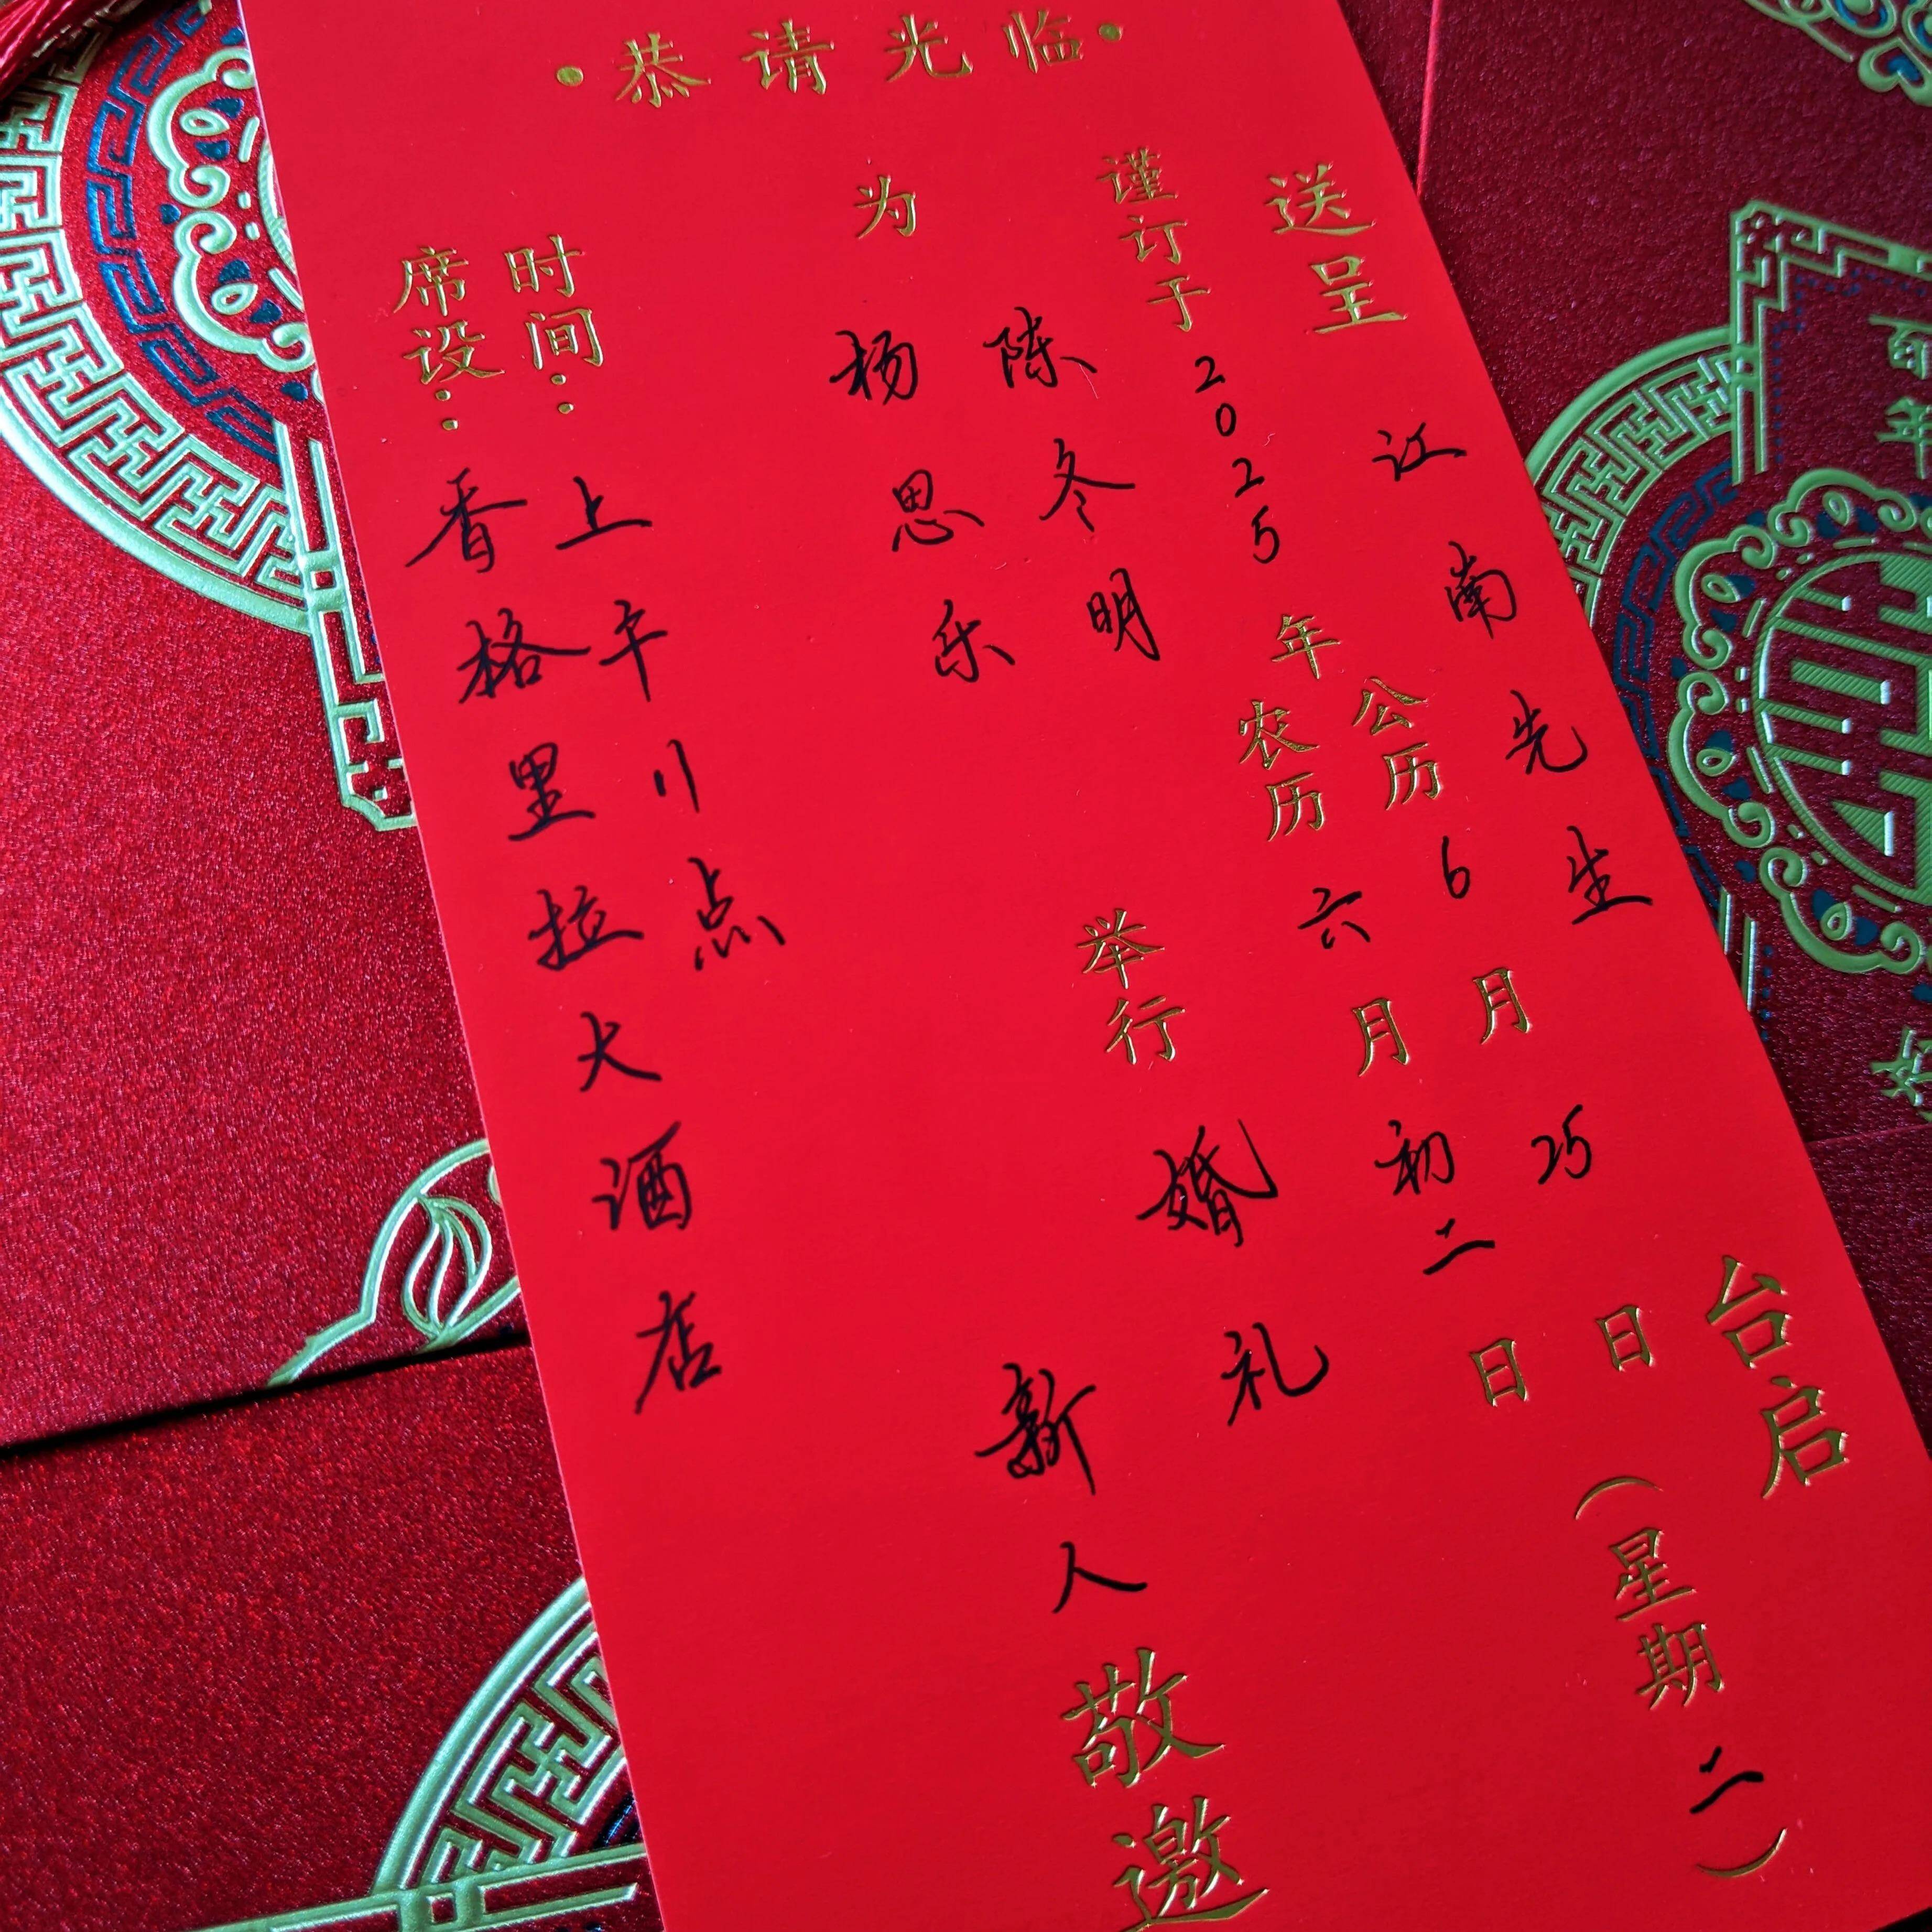 ·恭请光临·
送呈 江南先生 台启
谨订于2025年公历6月25日(星期二)
农历六月初二日
为 陈冬明
杨思乐
举行婚礼
新人敬邀
时间:上午11点
席设:香格里拉大酒店